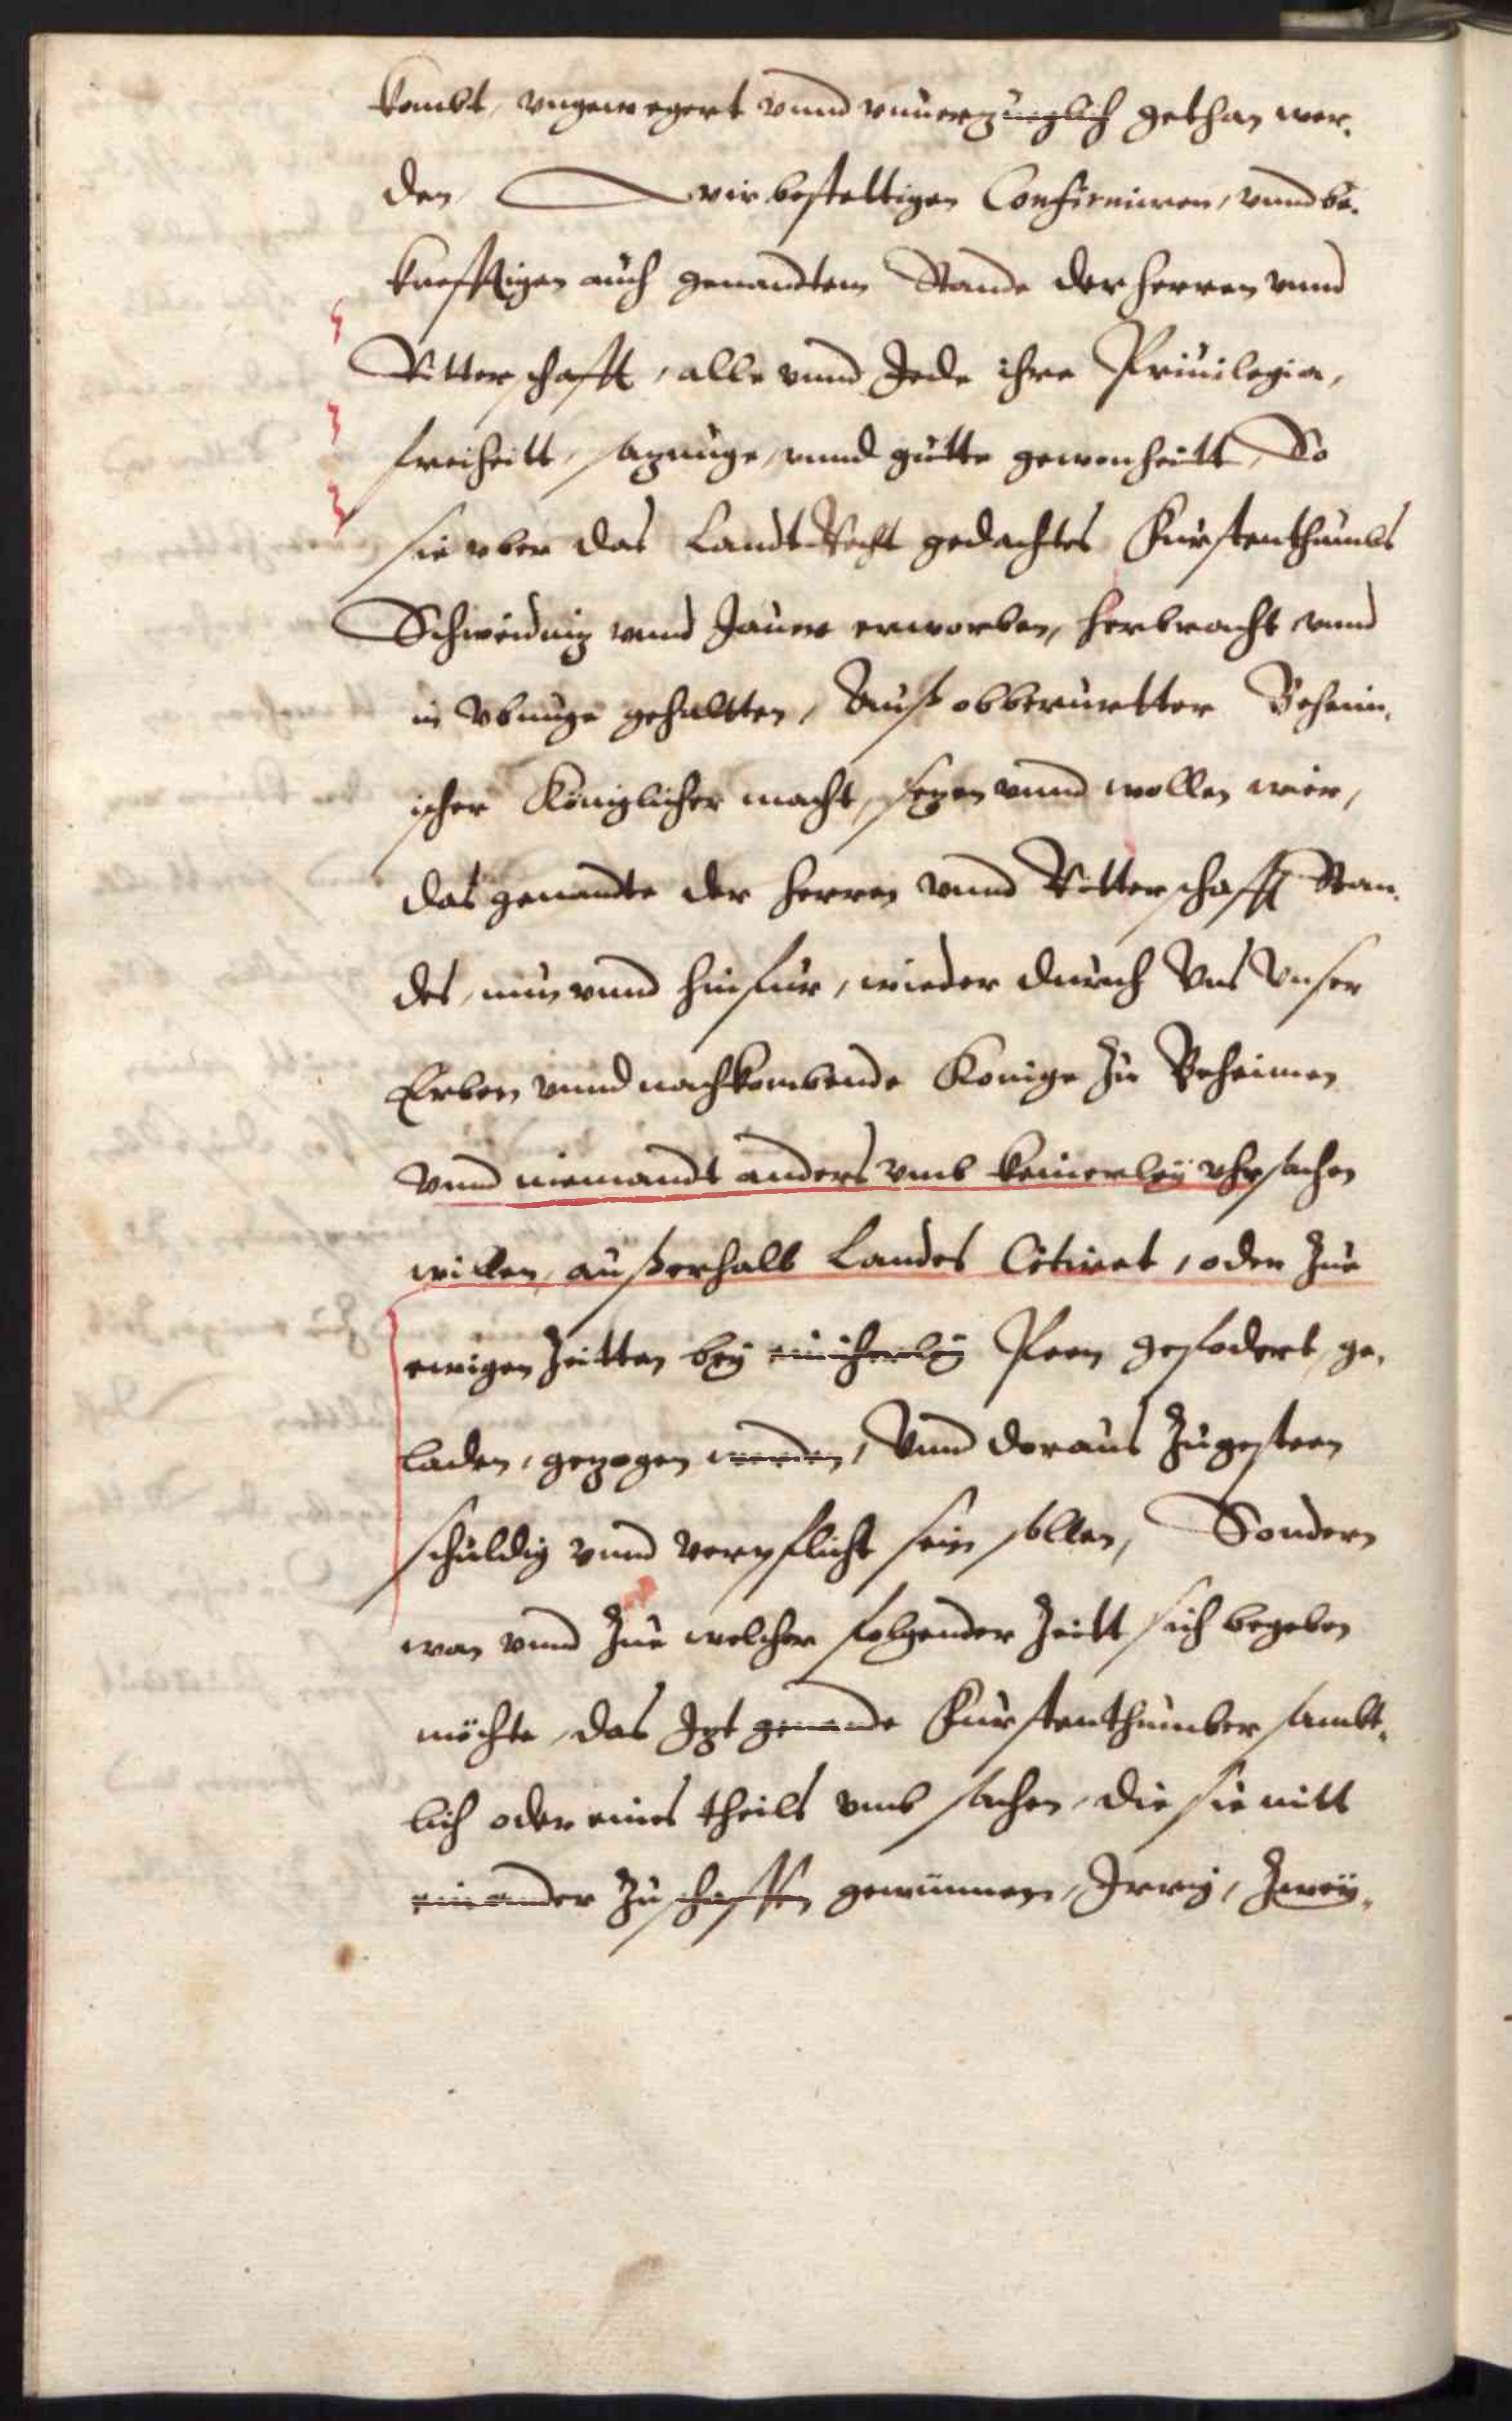 kombt, ungewegert vnnd vnuerzuglich gethan wer,
den, wir bestettigen Confirmiren, vnnd be,
krefftigen auch genandtem Stande der Herren vnnd
Ritterschafft, alle vnnd Jede ihre Priuilegia,
freiheitt, sazunge, vnnd gutte gewonheitt, So
sie vber das Landt-Recht gedachtes Furstenthumbs
Schweidniz vnnd Jauer erworben, herbracht vnnd
in Vbunge gehaltten, Auß obberurtter Behein,
ischer Königlicher macht, sezen vnnd wollen wier,
das genandte der Herren vnnd Ritterschafft Stan,
des, nun vnnd hinfur, wieder durch Vns Vnser
Erben vnnd nachkombende Konige zu Beheimen
vnnd niemandt anders vmb keinerley vhrsachen
willen, außerhalb Landes Citiret, oder zue
ewigen Zeitten bey einicherley Peen gefodert, ge,
laden, gezogen werden, Vnnd doraus zugesteen
schuldig vnnd verpflicht sein sollen, Sondern
wan vnnd zue welcher folgender Zeitt sich begeben
möchte, das Izt genande Furstenthumber sambt,
lich oder eines theils vmb sachen, die sie mitt
einander zuschaffen gewünnen, Irrig, Zwey,